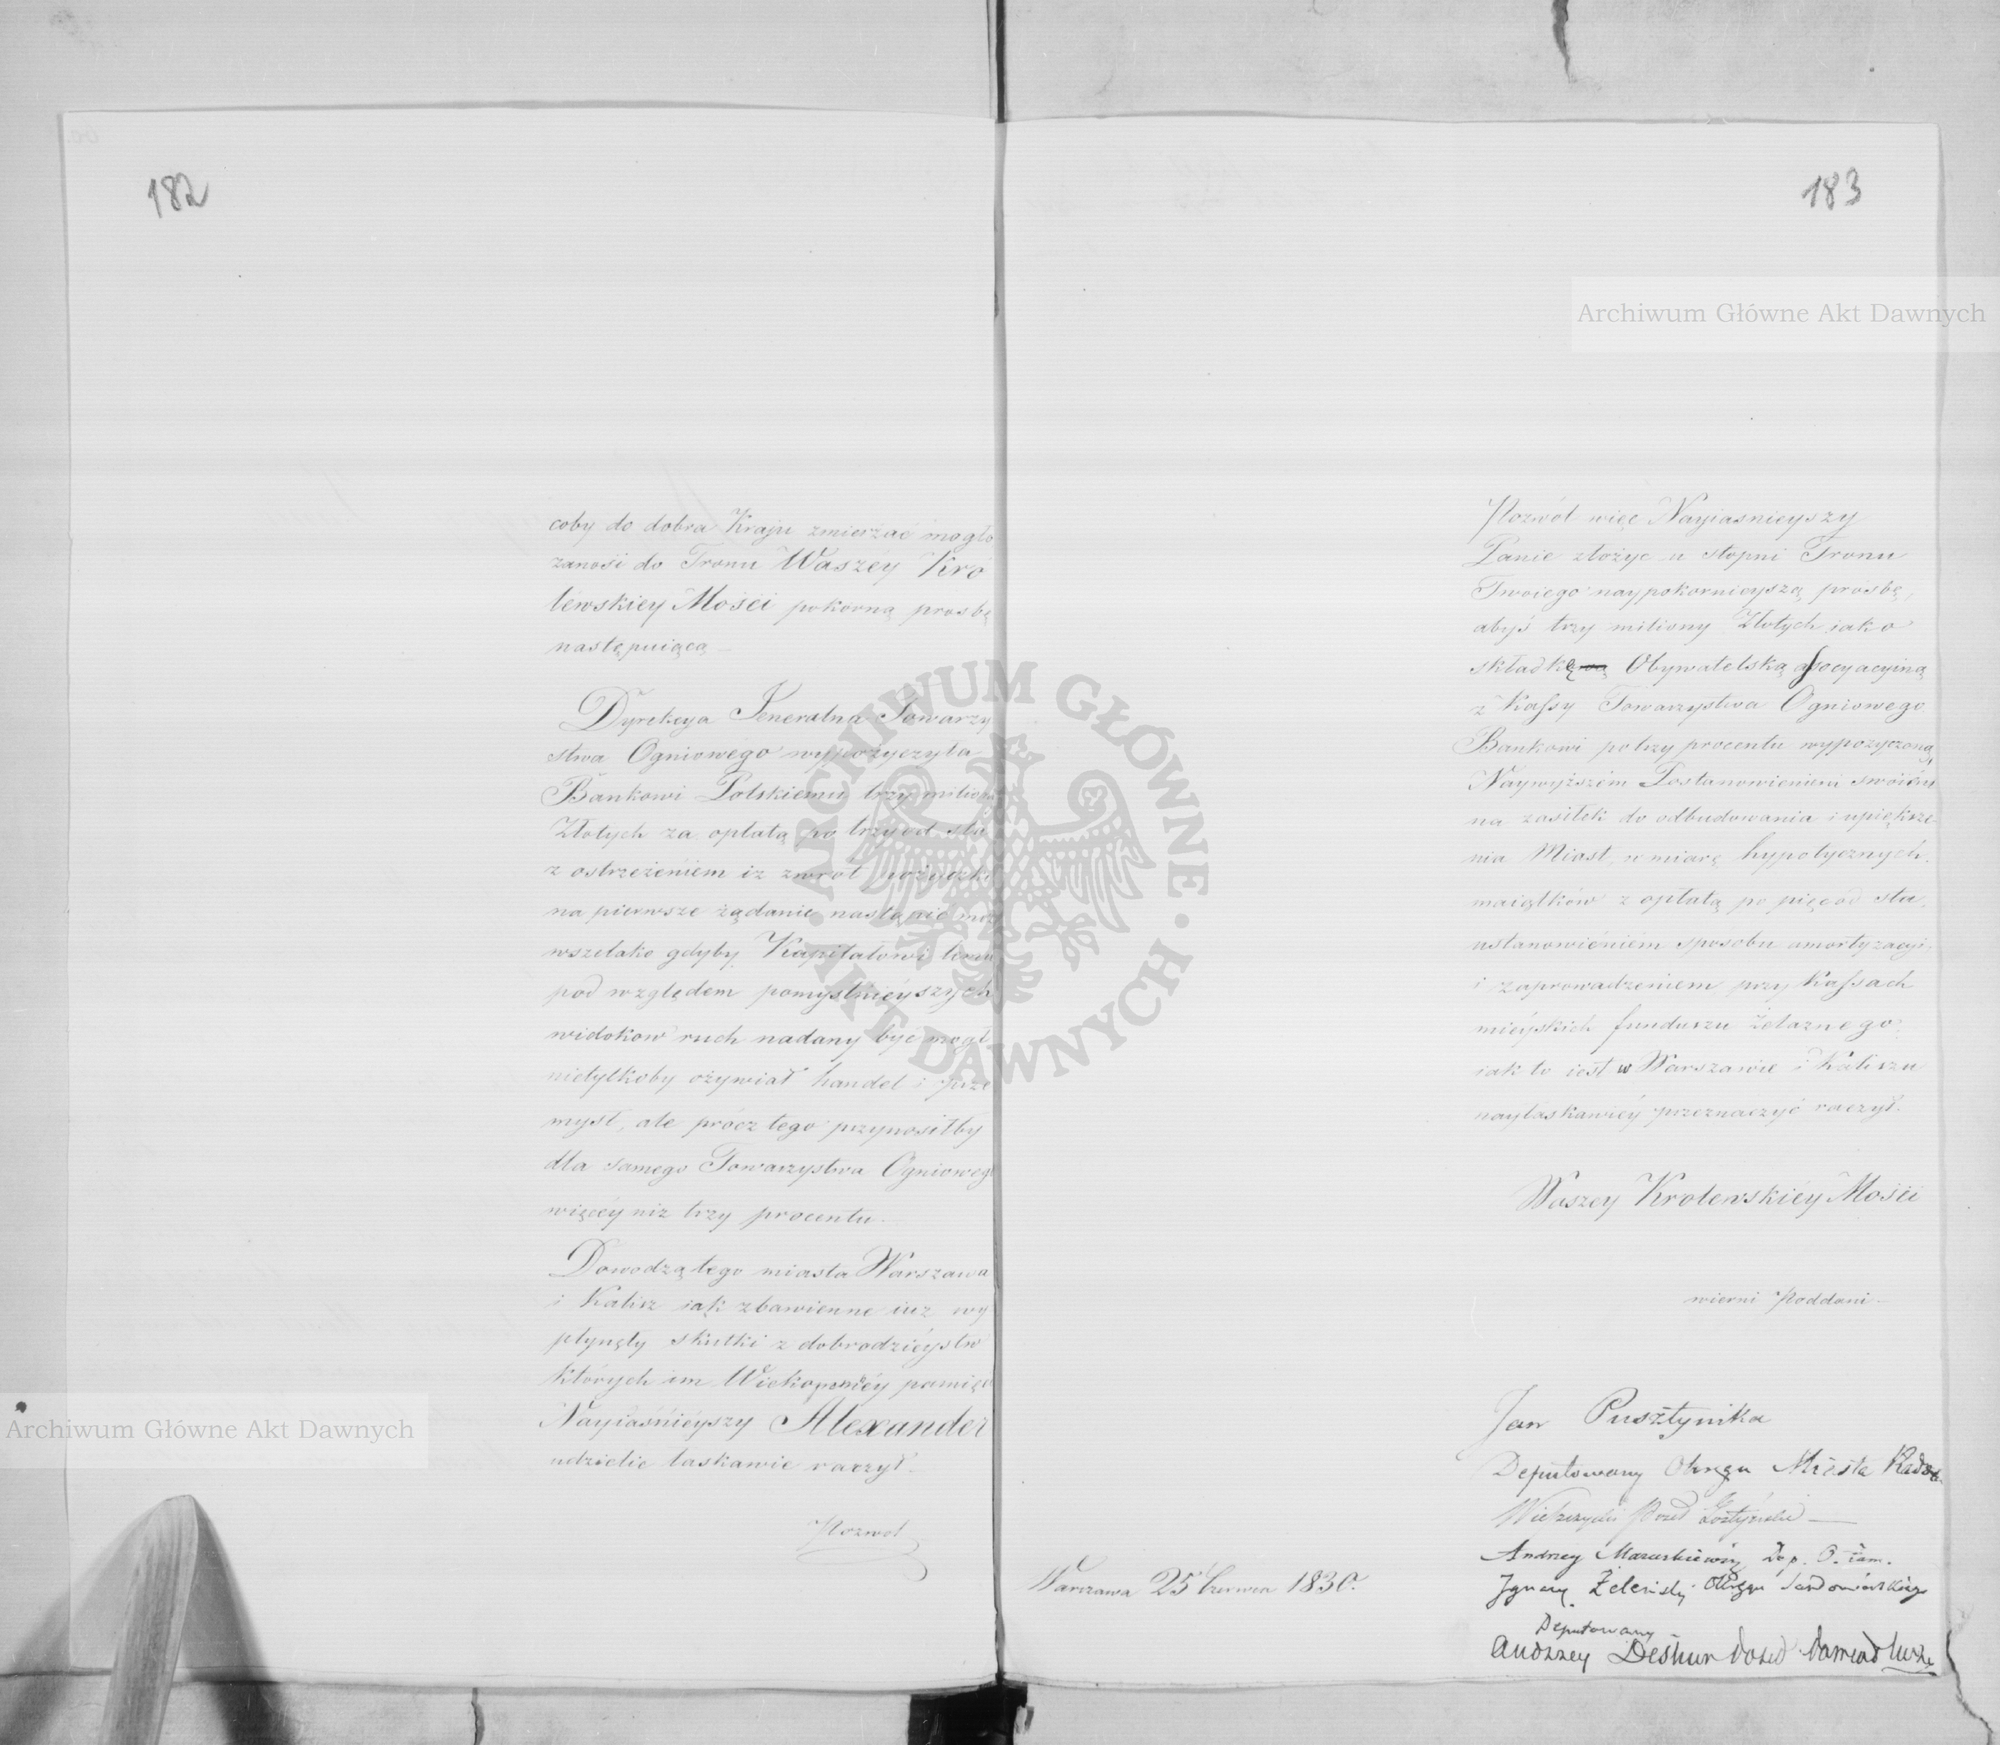 182
coby do dobra Kraju zmierzać mogło
zanosi do Tronu Waszéy Kró
léwskiey Mości pokorną prosbę
następuiącą
Dyrekcya Jeneralna Towarzy
stwa Ogniowego wypożyczyła
Bankowi Polskiemu trzy miliony
Złotych za opłatą po trzy od sto
z ostrzeżeniem iz zwrot pożyczki
na pierwsze żądanie nastąpić moż
wszelako gdyby Kapitałowi temu
pod względem pomyslnieyszych
widokow ruch nadany być mógł
nietylkoby ożywiał handel i prze
mysł, ale prócz tego przynosiłby
dla samego Towarzystwa Ogniowego
więcéy niz trzy procentu.
Dowodzą tego miasta Warszawa
i Kalisz iak zbawienne iuz wy
płynęły skutki z dobrodzieystw
których im Wiekopomnéy pamięci
Nayiaśnieyszy Alexander
udzielic łaskawie raczył
Pozwol
183
Pozwól więc Nayiasnieyszy
Panie złożyc u stopni Tronu
Twoiego naypokornieyszą prosbę,
abyś trzy miliony Złotych iako
składkę Obywatelską assocyacyiną
z Kassy Towarzystwa Ogniowego
Bankowi po trzy procentu wypożyczoną,
Naywyższém Postanowieniem swoiém
na zasiłek do odbudowania i upiększe-
nia Miast, w miarę hypotycznych
maiątków z opłatą po pięć od sta,
ustanowieniem sposobu amortyzacyi,
i zaprowadzeniem przy Kassach
mieyskich funduszu żelaznego
iak to iest w Warszawie i Kaliszu
nayłaskawiéy przeznaczyć raczył.
Waszey Krolewskiéy Mości
wierni Poddani
Jan Pusztynika
Deputowany Okręgu Miasta
Poseł
Andrzey Dep. O.
Ignacy Okręgu Sandomirskiego
Deputowany
Andrzey Poseł
Warszawa 25 Czerwca 1830.
Archiwum Główne Akt Dawnych
Archiwum Główne Akt Dawnych
ARCHIWUM GŁÓWNE · AKT DAWNYCH ·